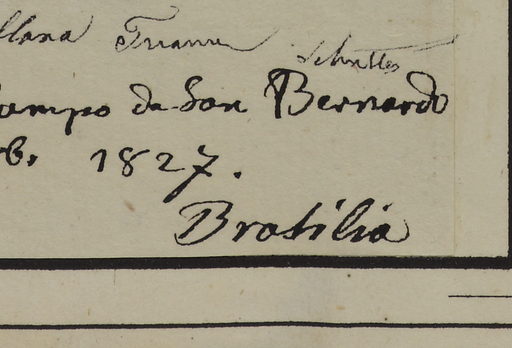 llana Trianu Schultes
Campo da San Bernardo
b. 1827.
Brasilia